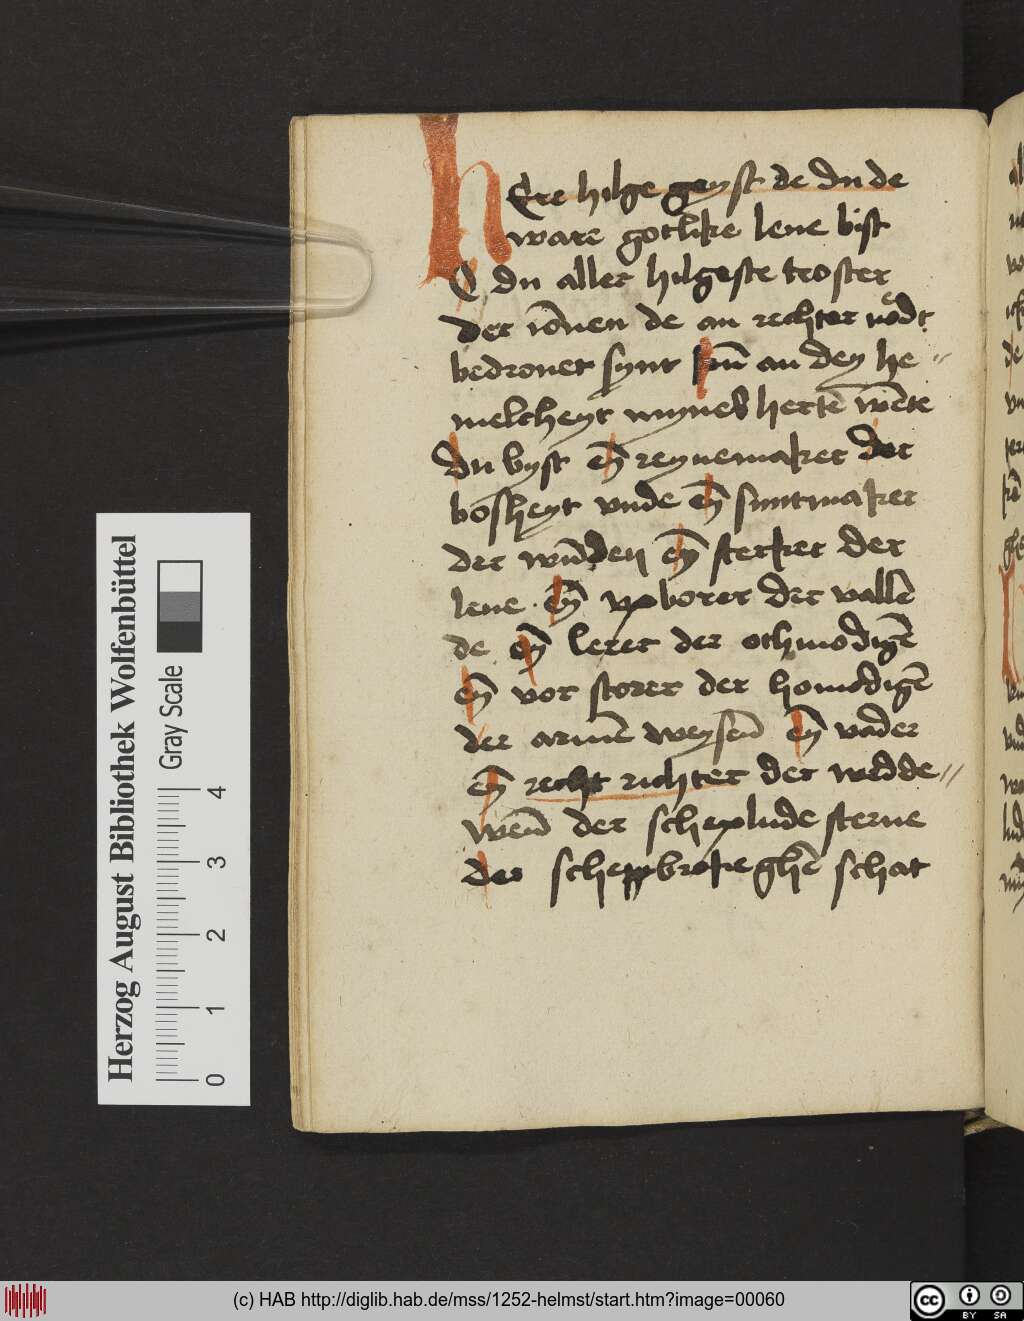 hEre hilge geyst de du de
ware gotlike leue bist
O du aller hilgeste troster
der iōnen de an rechter noͤdt
bedrouet synt kū an dey he〃
melcheyt mynes hertē wēte
du byst eȳ reynemaker der
bosheyt vnde eȳ suntmaker
der wūden eȳ sterker der
leue · eȳ vpborer der vallē
de eȳ lerer der othmodigē
eȳ vor storer der homodigē
der armē weysēn eȳ vader
eȳ recht richter der wedde〃
wēn der scheplude sterne
der scheppbrokeghē schat
Herzog August Bibliothek Wolfenbüttel
Gray Scale
0 1 2 3 4
(c) HAB http://diglib.hab.de/mss/1252-helmst/start.htm?image=00060
cc BY SA